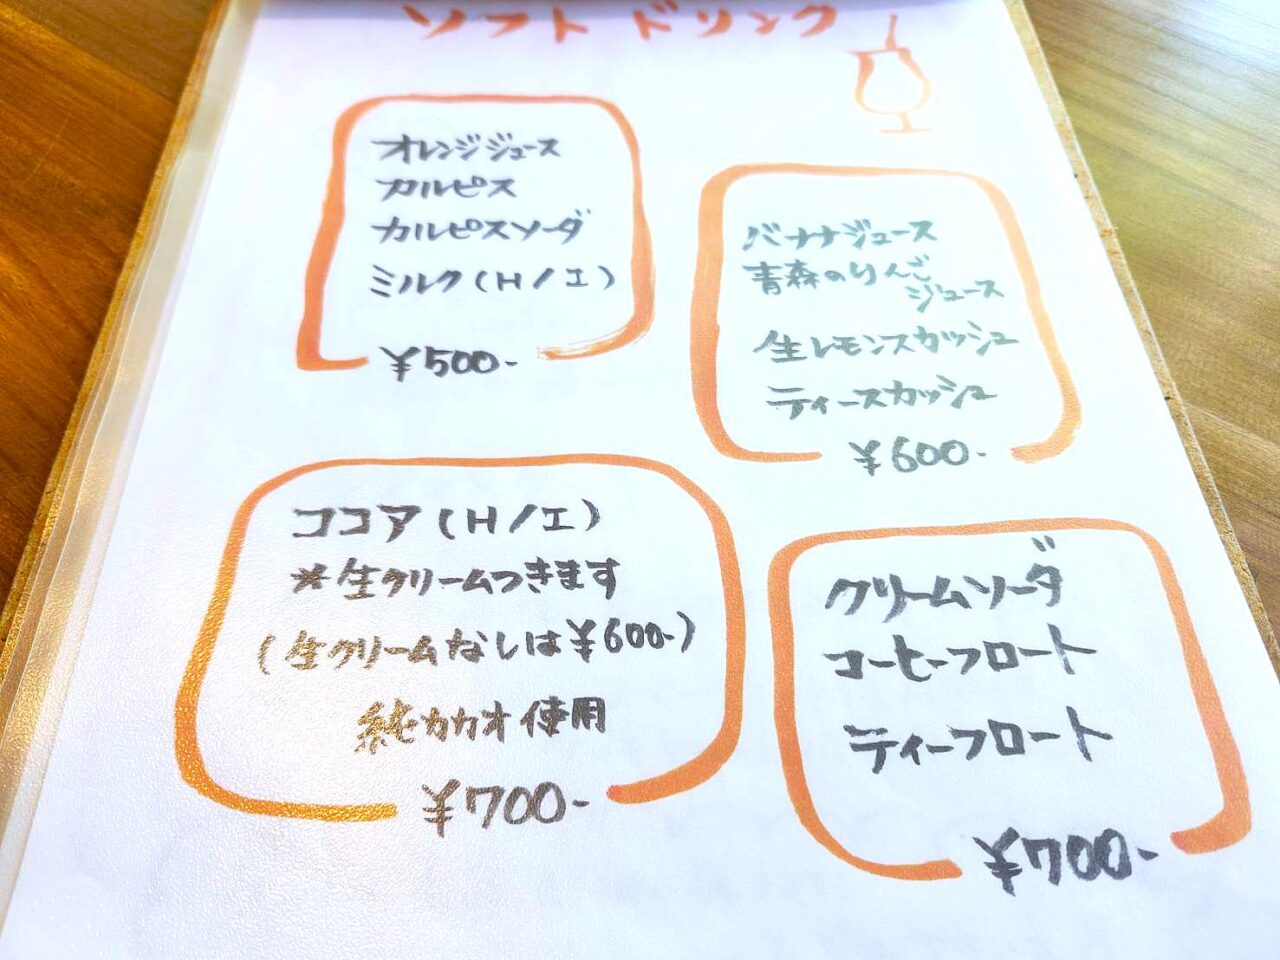 ソフトドリンク
オレンジジュース
カルピス
カルピスソーダ
ミルク(H/I)
¥500-
バナナジュース
青森のりんご
ジュース
生レモンスカッシュ
ティースカッシュ
¥600-
ココア(H/I)
※生クリームつきます
(生クリームなしは¥600-)
純カカオ使用
¥700-
クリームソーダ
コーヒーフロート
ティーフロート
¥700-